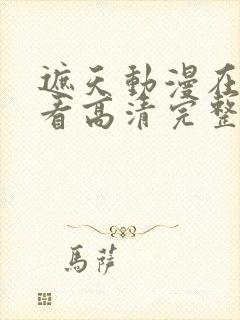 遮天動漫在
看高清完整
馬薩